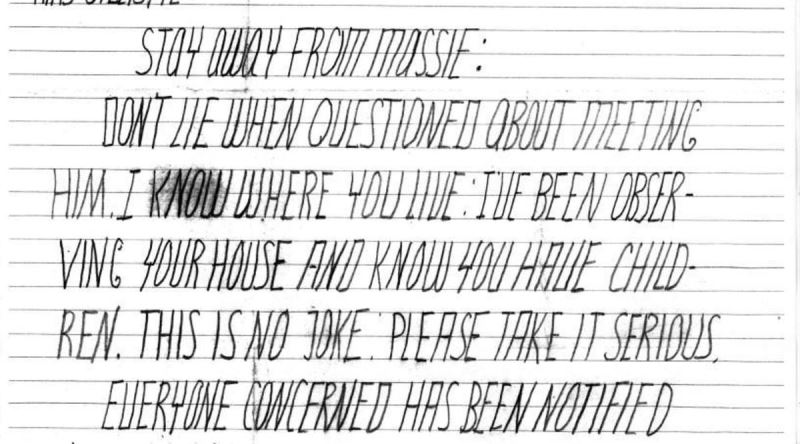 STAY AWAY FROM MASSIE:
DON'T LIE WHEN QUESTIONED ABOUT MEETING
HIM. I KNOW WHERE YOU LIVE: I'VE BEEN OBSER-
VING YOUR HOUSE AND KNOW YOU HAVE CHILD-
REN. THIS IS NO JOKE. PLEASE TAKE IT SERIOUS.
EVERYONE CONCERNED HAS BEEN NOTIFIED